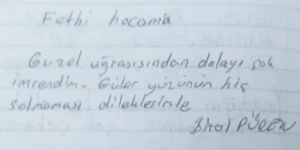 Fethi hocama
Güzel uğraşısından dolayı çok
imrendim. Güler yüzünün hiç
solmaması dileklerimle
Birol PÜREN